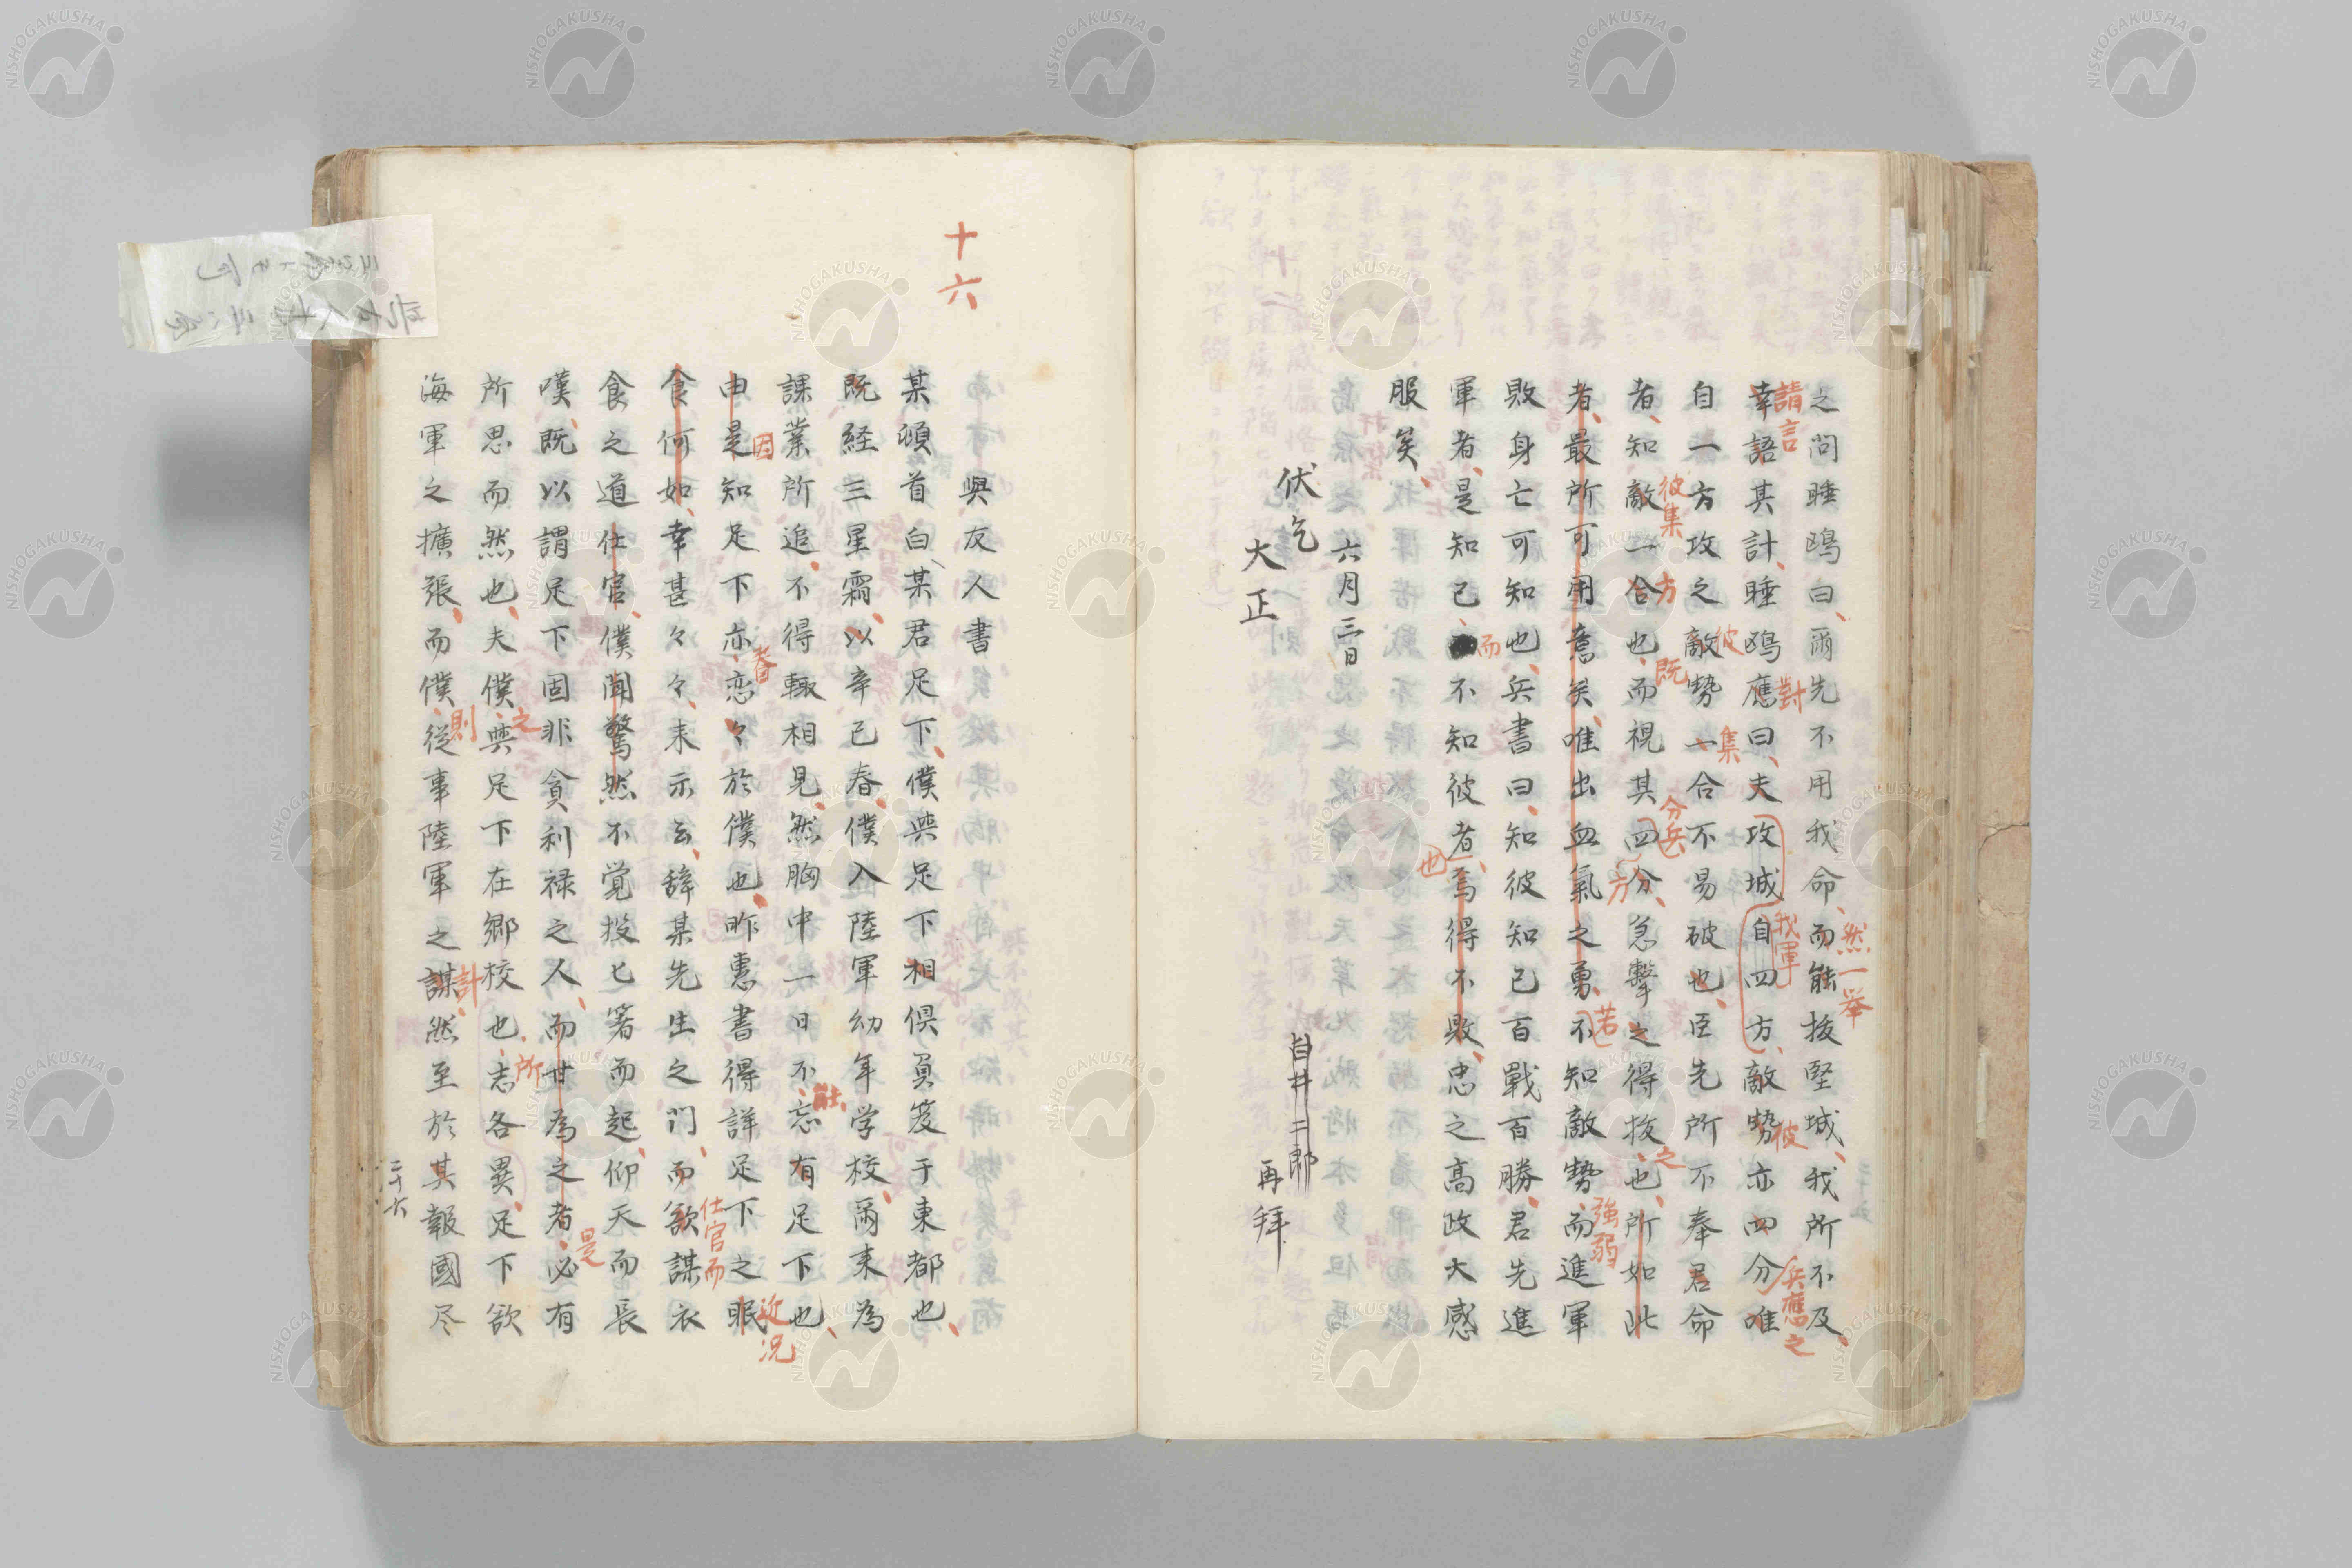 之問睡鴎曰爾先不用我命而能抜堅城我所不及
然一挙
幸語其計睡鴎應曰夫攻城自四方敵勢亦四分唯
請言
對
我軍
彼
兵應之
自一方攻之敵勢一合不易破也臣先所不奉君命
彼
集
者知敵一合也而視其四分急擊之得抜也所如此
彼集
方
既
分兵
方
之
者最所可用意矣唯出血氣之勇不知敵勢而進軍
若
強弱
敗身亡可知也兵書曰知彼知己百戰百勝君先進
軍者是知己不知彼者焉得不敗忠之高政大感
而
也
服矣
六月三日
伏乞
白井二郎
大正
再拝
十六
與友人書
某頓首白某君足下僕與足下相倶負笈于東都也
既経三星霜以辛己春僕入陸軍幼年学校爾来為
課業所追不得輙相見然胸中一日不忘有足下也
能
由是知足下亦恋々於僕也昨恵書得詳足下之眠
因
眷
近況
食何如幸甚々々来示云辞某先生之门而欲謀衣
仕官而
食之道仕官僕聞驚然不覚投匕箸而起仰天而長
嘆既以謂足下固非貪利禄之人而甘為之者必有
是
所思而然也夫僕與足下在郷校也志各異足下欲
之
所
海軍之擴張而僕從事陸軍之謀然至於其報國尽
則
計
二十六